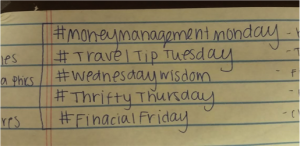 #moneymanagementmonday -
#Travel Tip Tuesday -
#wednesdaywisdom -
#Thrifty Thursday -
#Finacial Friday -